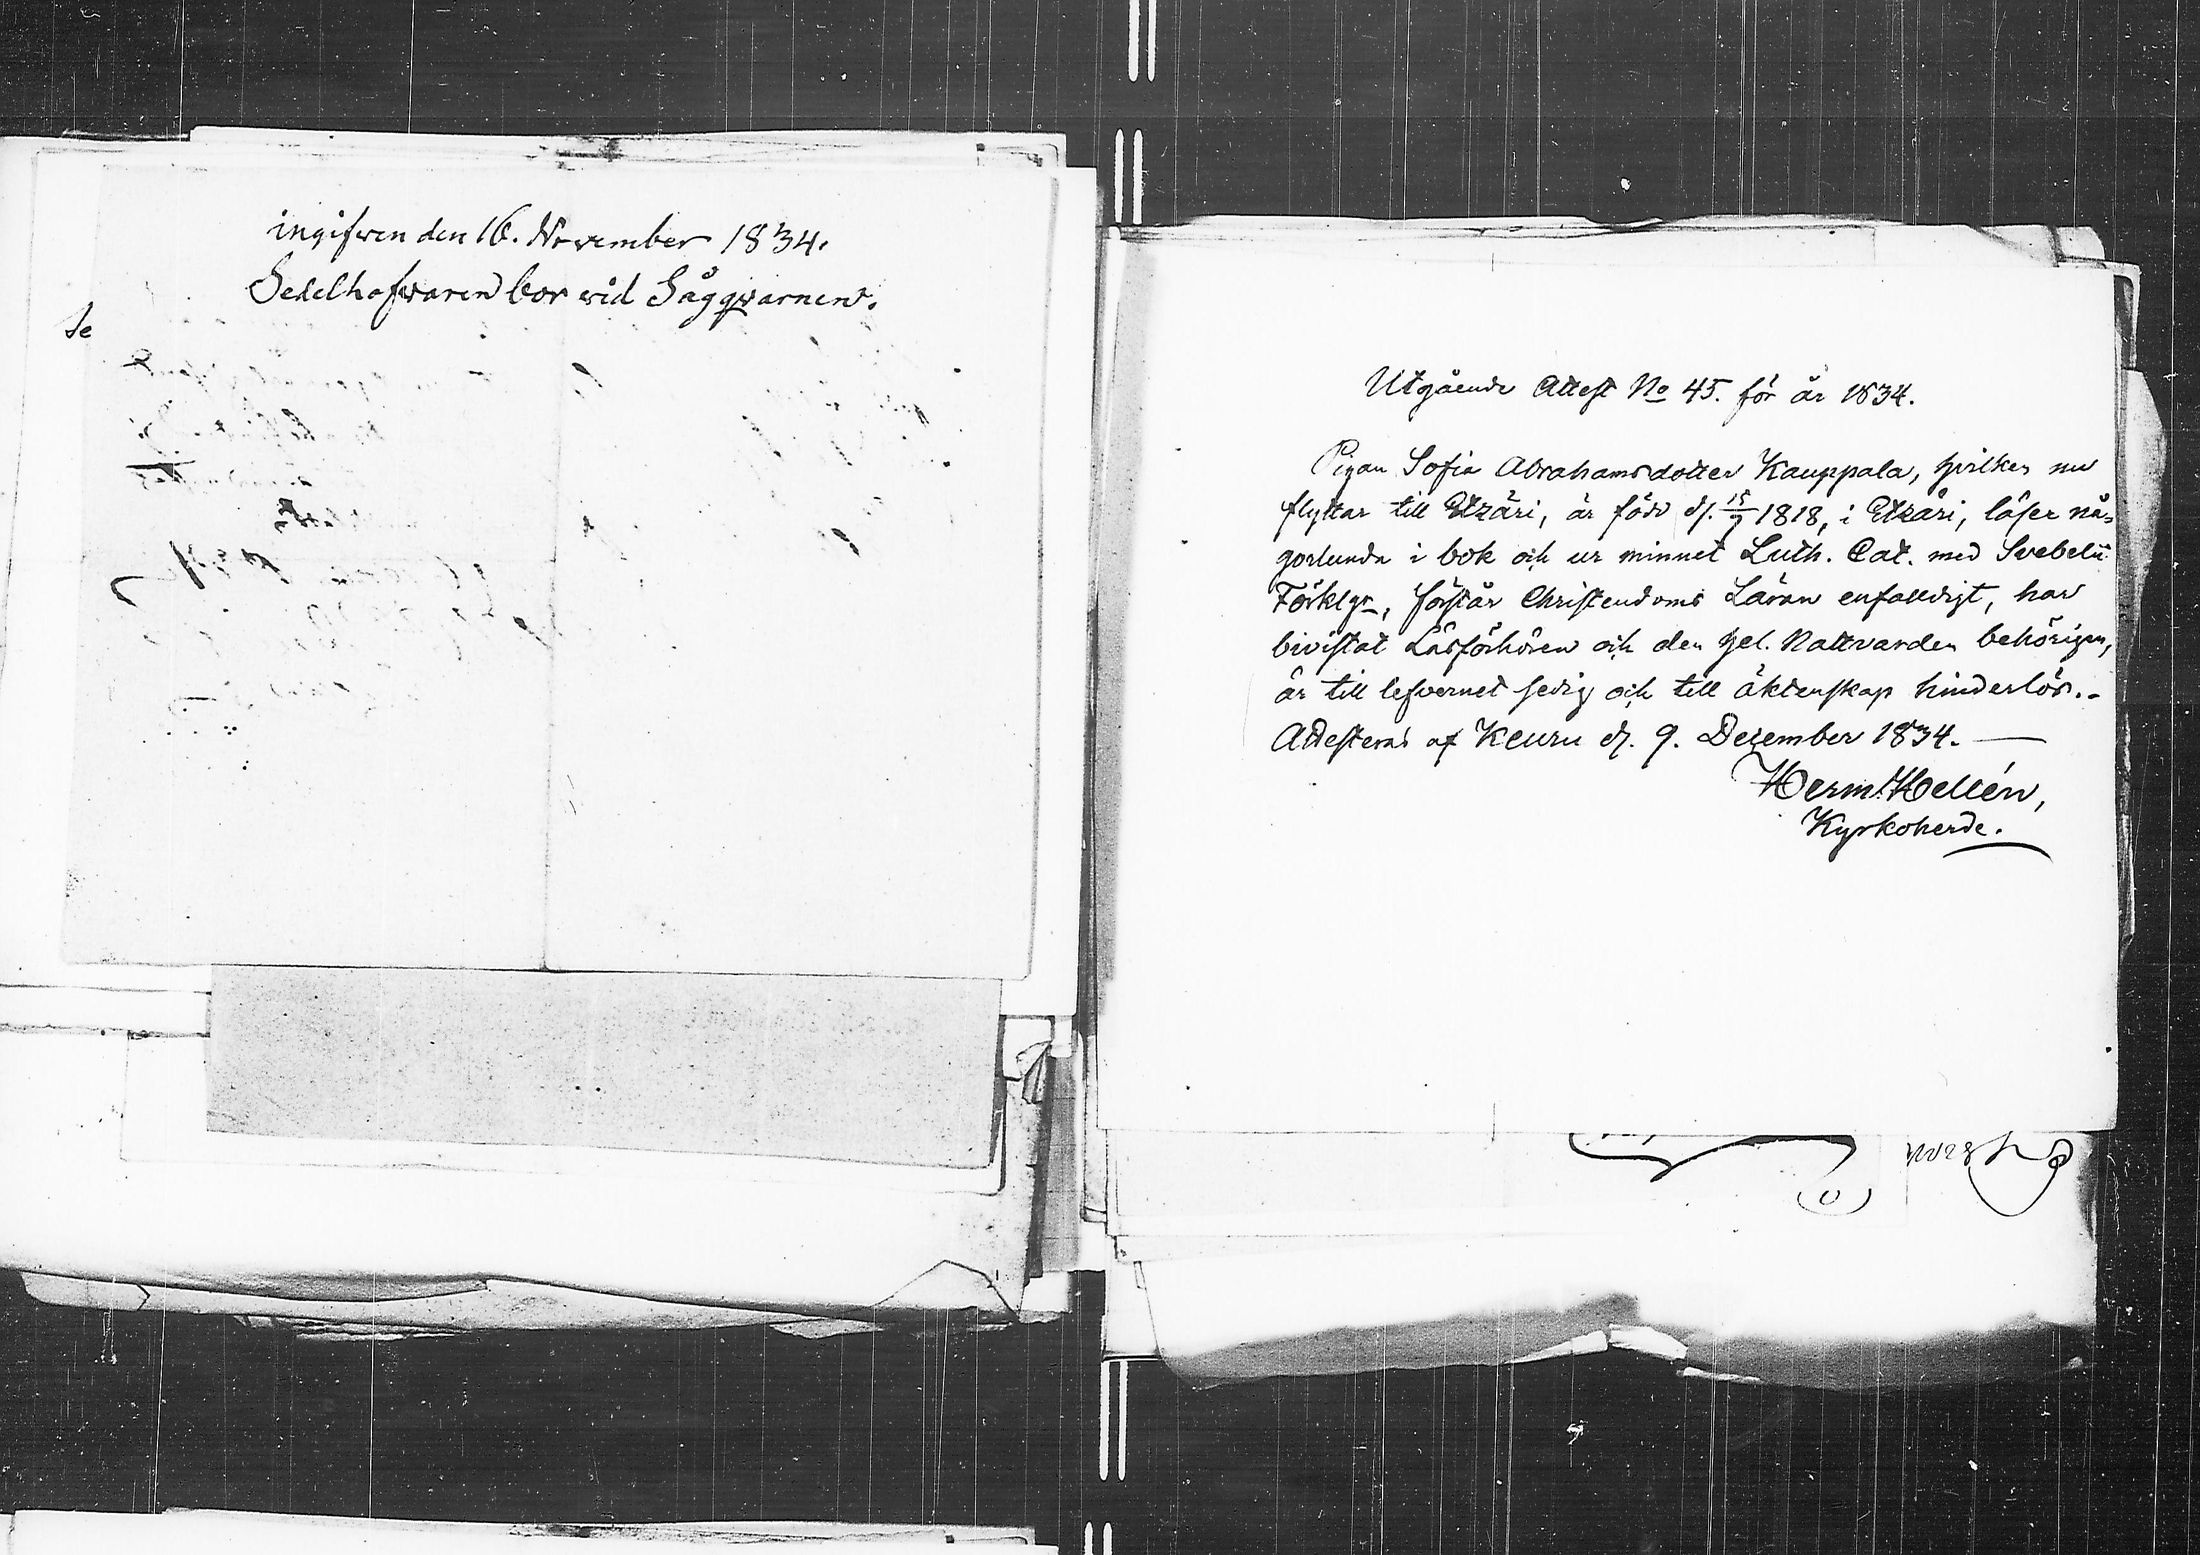 ingifwen den 16. November 1834.
Sedelhafwaren bor wid Sågqwarnen.
Se
Utgående Attest No 45. för år 1834.
Pigan Sofia Abrahamsdotter Kauppala, hvilken nu
flyttar till Etzäri, är född d. 15/7 1818, i Etzäri, läser nå-
gorlunda i bok och ur minnet Luth. Cat. med Svebelii
Förklgr, förstår Christendoms Läran enfalldigt, har
bivistat Läsförhören och den hel. Nattvarden behörigen,
är till lefvernet sedig och till äktenskap hinderlös.-
Attesteras af Keuru d. 9. December 1834. —
Herm. Hellén,
Kyrkoherde.